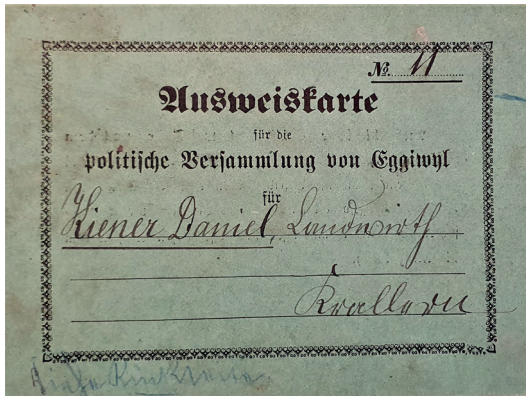 No. 11
Ausweiskarte
für die
politische Versammlung von Eggiwyl
für
Kiener Daniel, Landwirth
Krallern
Siehe Rückseite